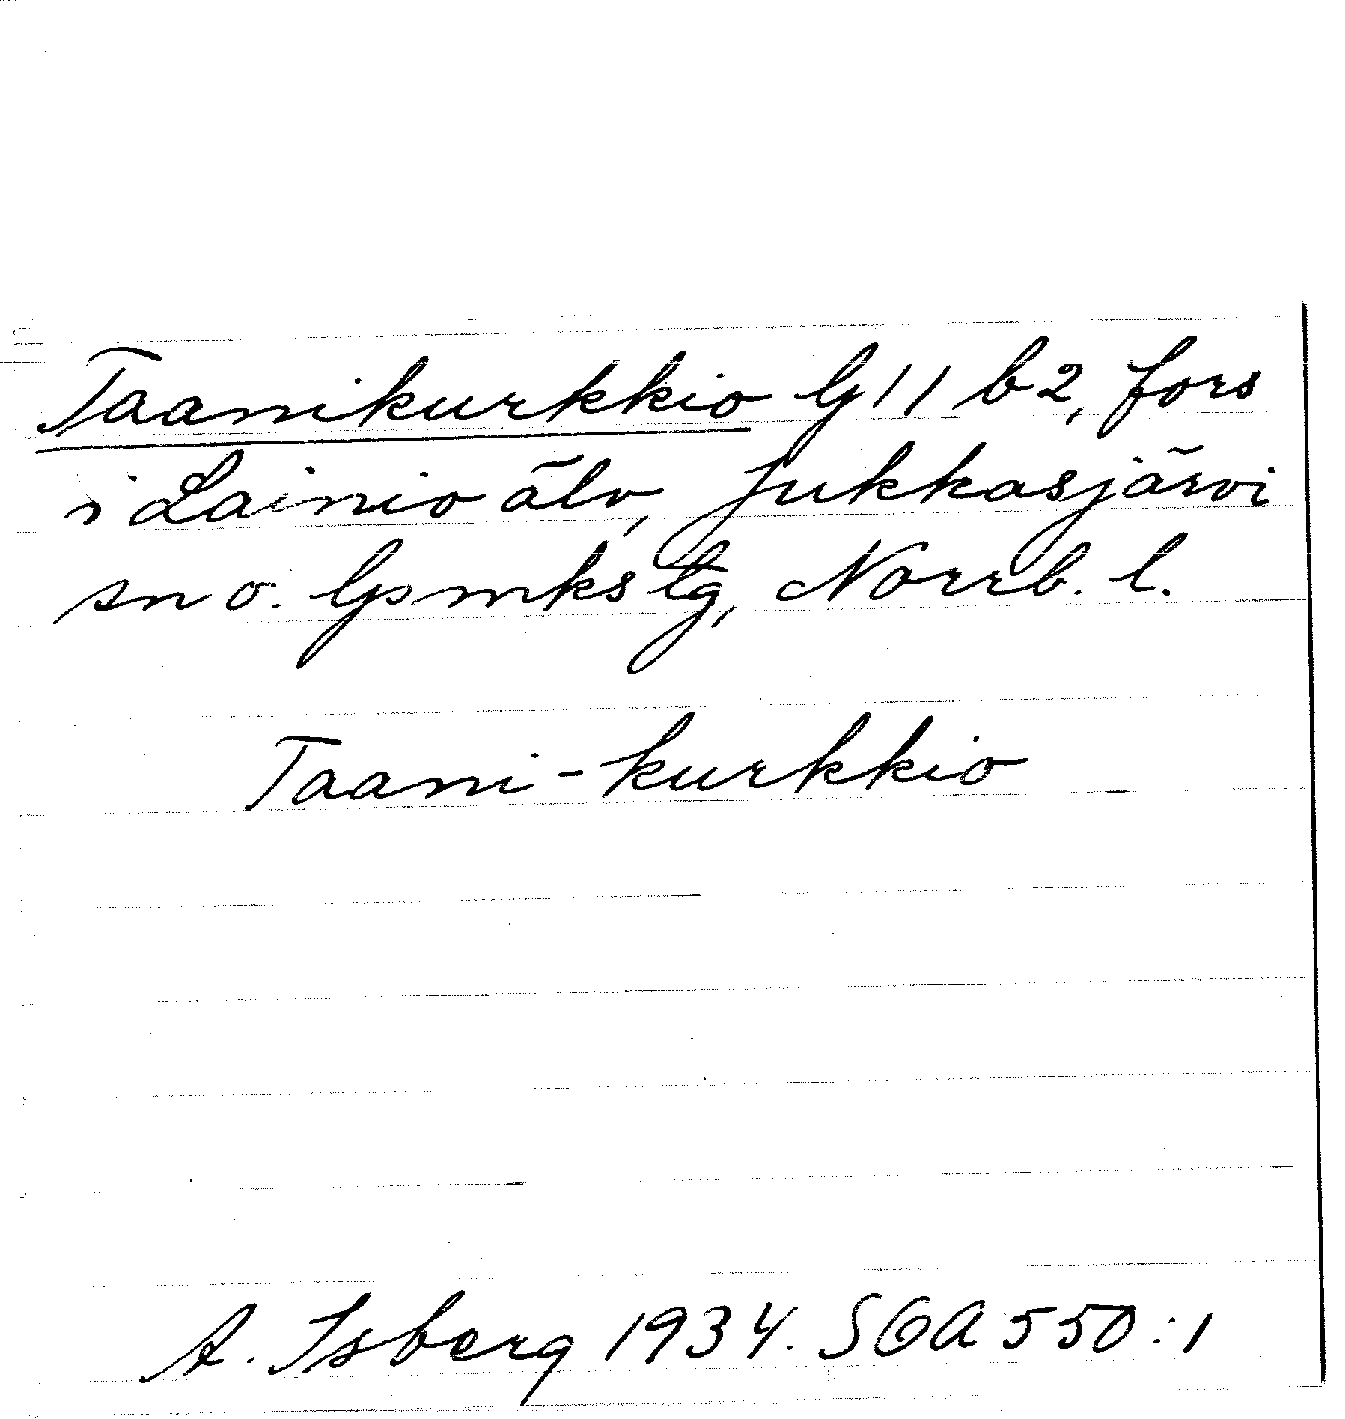 Taanikurkkio G 11 b 2, fors
i Lainio älv, Jukkasjärvi
sn o. lpmks tg, Norrb. l.
Taani-kurkkio
A. Isberg 1934. SOA 550:1